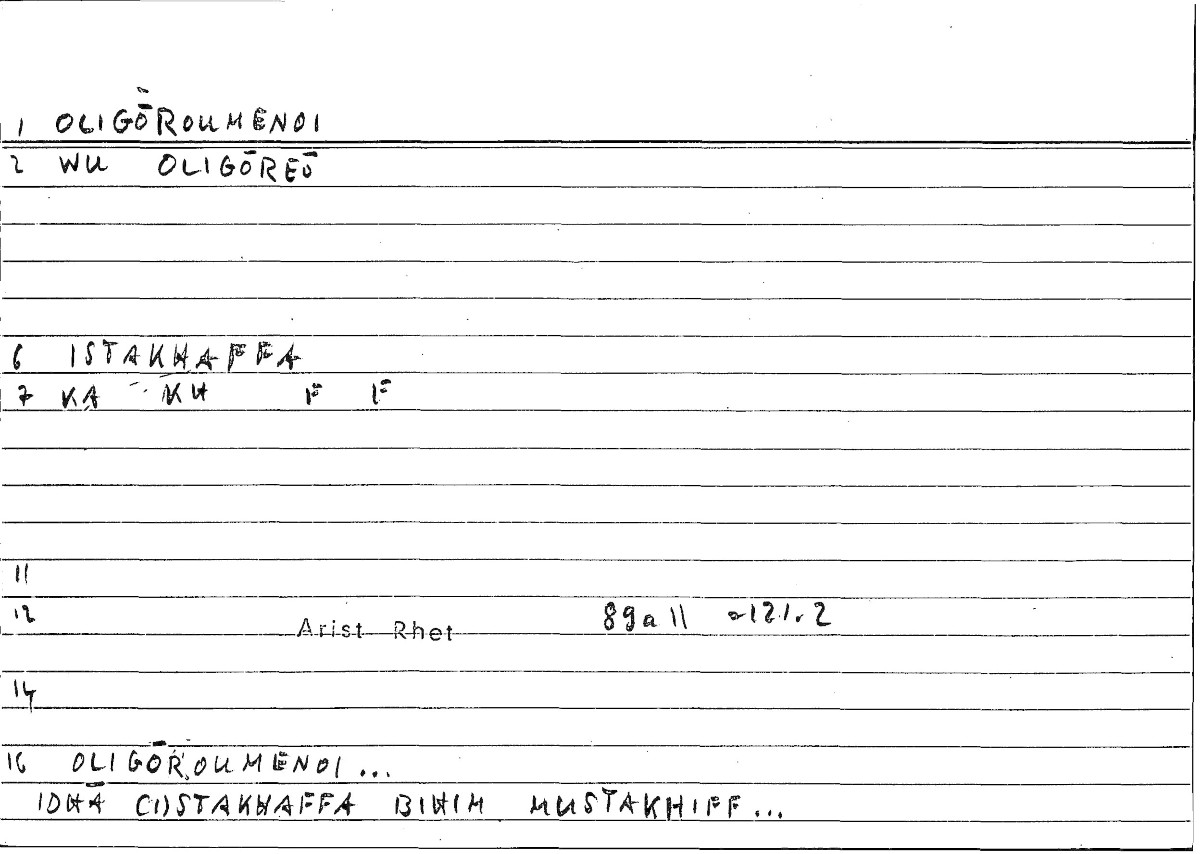 1 OLIGŌROUMENOI
2 WU OLIGŌREŌ
6 ISTAKHAFFA
7 KA KH F F
11
12 Arist Rhet 89a11 =121.2
14
16 OLIGŌROUMENOI...
IDHĀ (I)STAKHAFFA BIHIM MUSTAKHIFF...